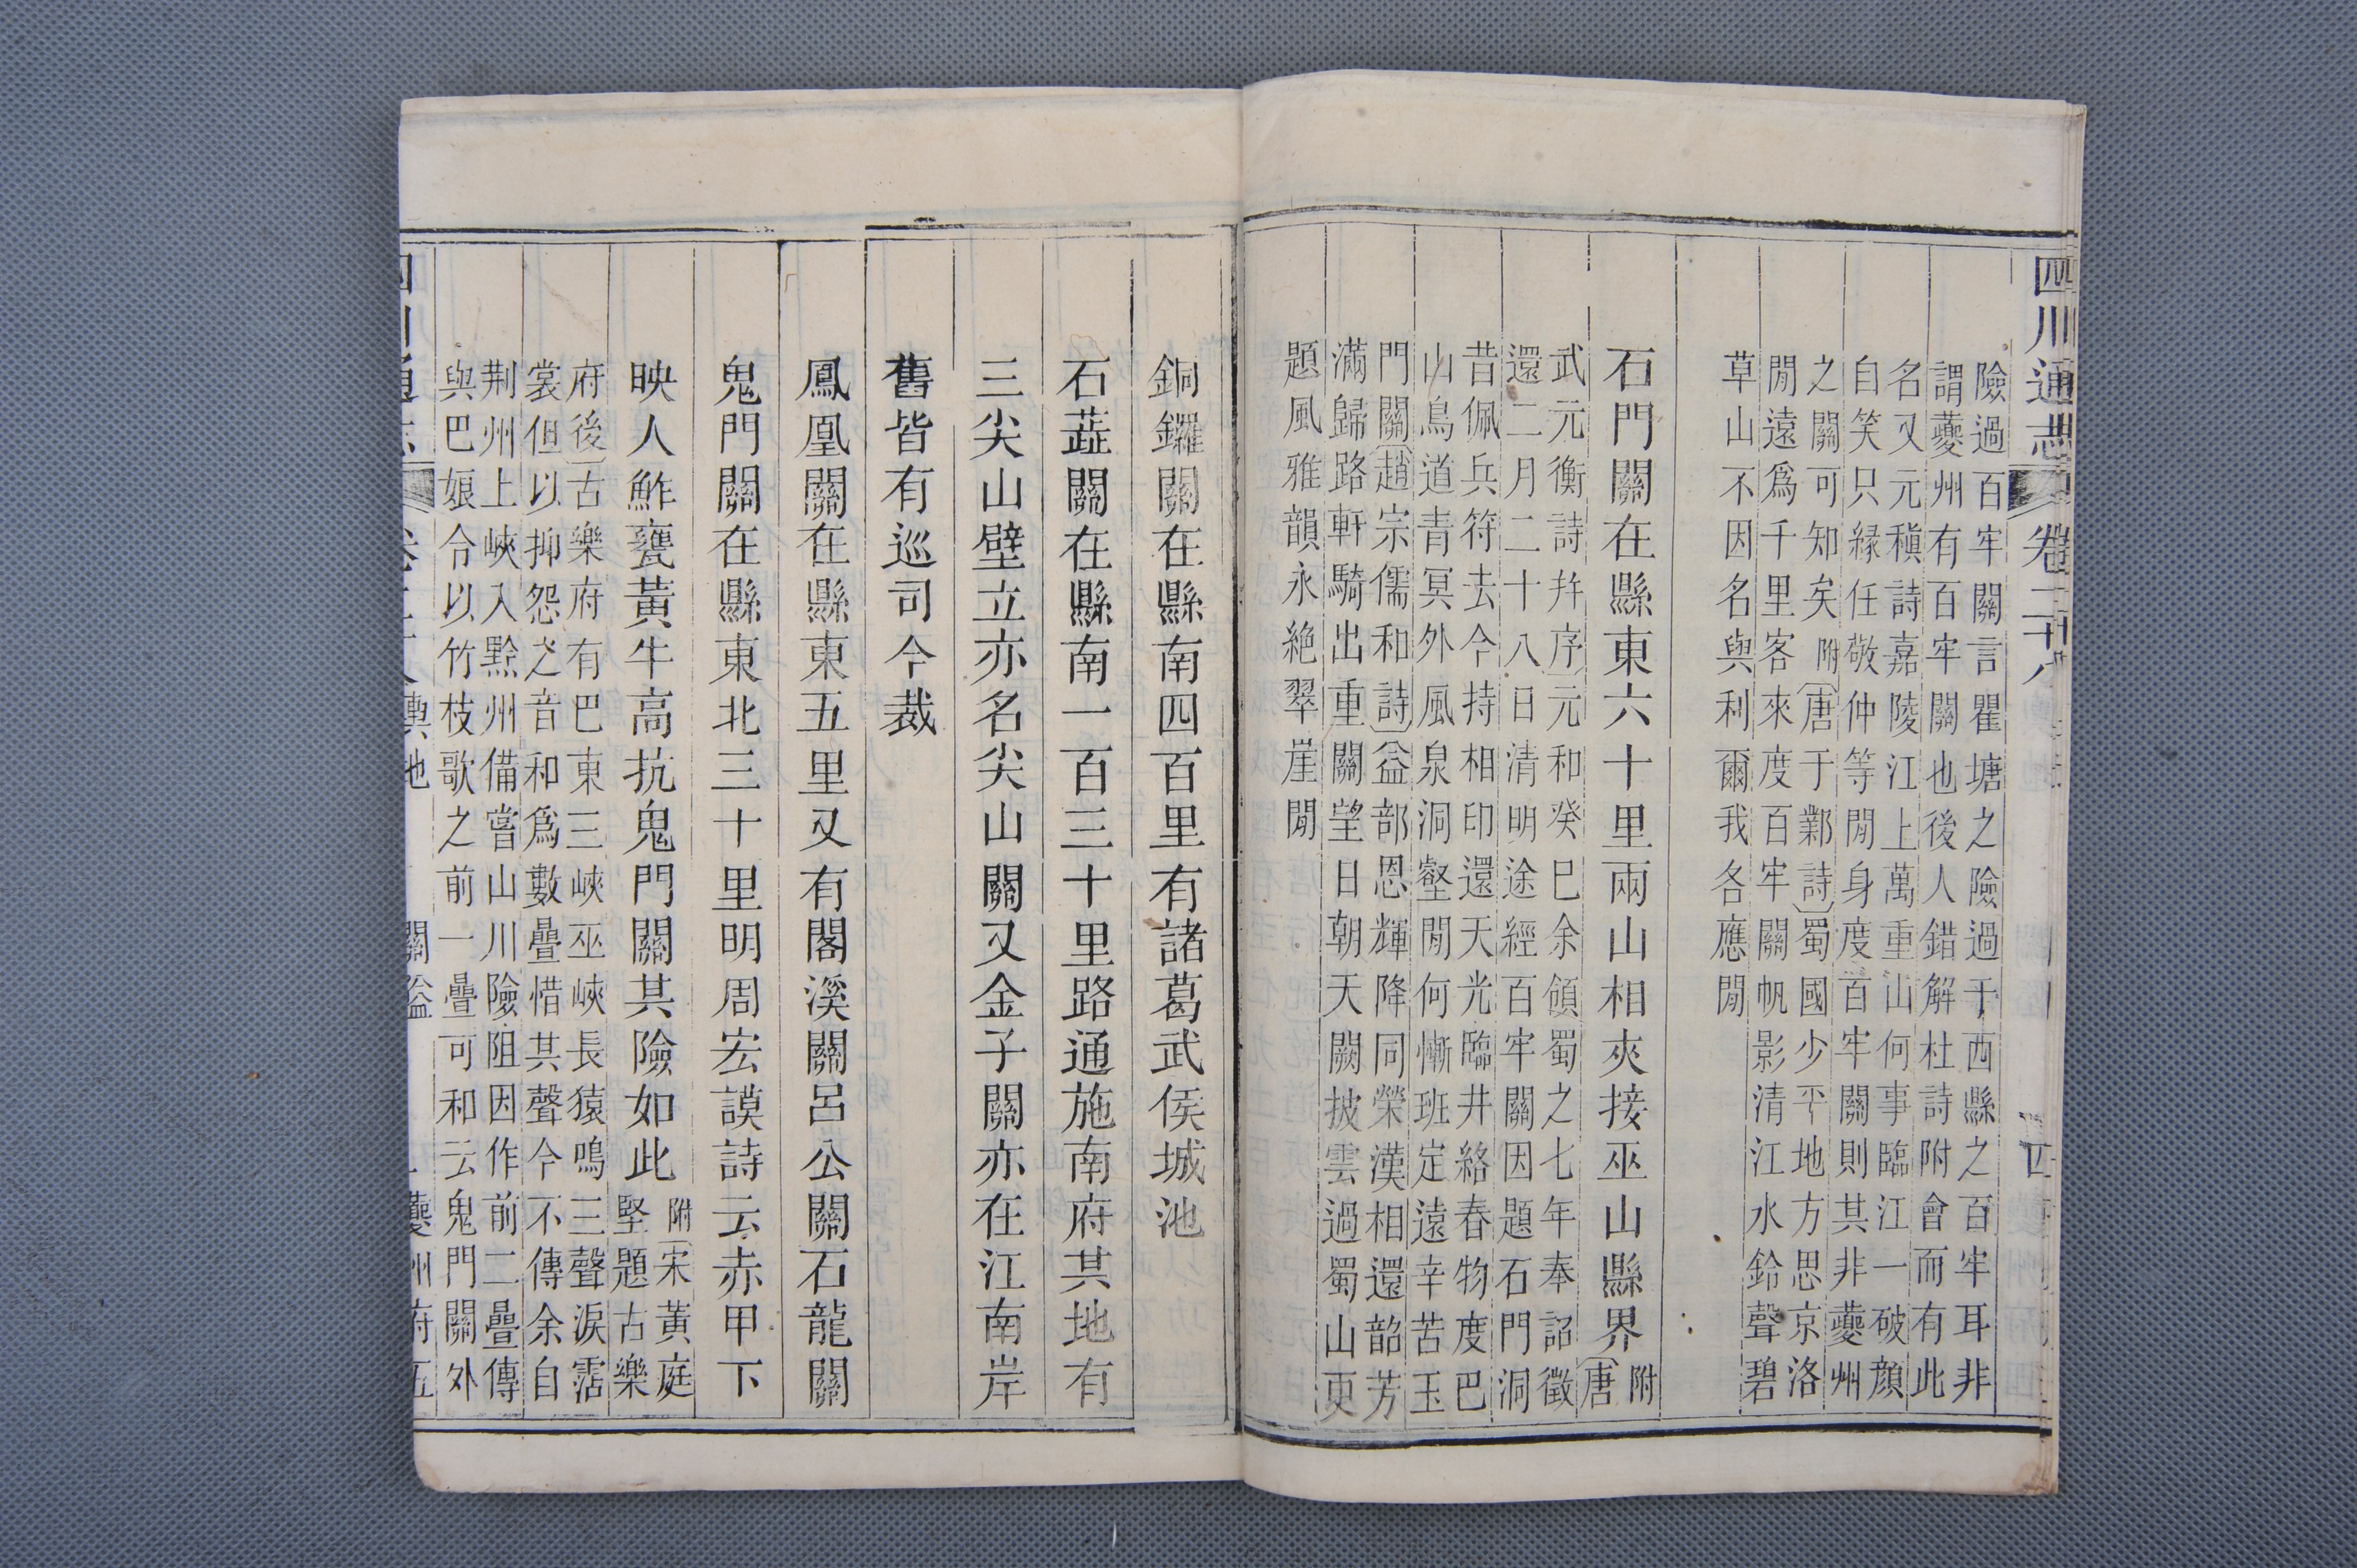 四川通志
卷二十八
四
險過百牢關言瞿塘之險過于西縣之百牢耳非
謂夔州有百牢關也後人錯解杜詩附會而有此
名又元稹詩嘉陵江上萬重山何事臨江一破顔
自笑只緣任敬仲等閒身度百牢關則其非夔州
之關可知矣附唐于鄴詩蜀國少平地方思京洛
閒遠爲千里客來度百牢關帆影清江水鈴聲碧
草山不因名與利爾我各應閒
石門關在縣東六十里兩山相夾接巫山縣界附唐
武元衡詩幷序元和癸巳余領蜀之七年奉詔徵
還二月二十八日清明途經百牢關因題石門洞
昔佩兵符去今持相印還天光臨井絡春物度巴
山鳥道青冥外風泉洞壑閒何慚班定遠幸苦玉
門關趙宗儒和詩益部恩輝降同榮漢相還韶芳
滿歸路軒騎出重關望日朝天闕披雲過蜀山更
題風雅韻永絕翠崖閒
銅鑼關在縣南四百里有諸葛武侯城池
石蕋關在縣南一百三十里路通施南府其地有
三尖山壁立亦名尖山關又金子關亦在江南岸
舊皆有巡司今裁
鳳凰關在縣東五里又有閣溪關呂公關石龍關
鬼門關在縣東北三十里明周宏謨詩云赤甲下
映人鮓甕黃牛高抗鬼門關其險如此附宋黃庭
堅題古樂
府後古樂府有巴東三峽巫峽長猿鳴三聲淚霑
裳但以抑怨之音和爲數疊惜其聲今不傳余自
荆州上峽入黔州備嘗山川險阻因作前二疊傳
與巴娘令以竹枝歌之前一疊可和云鬼門關外
四川通志
輿地
關隘
夔州府五